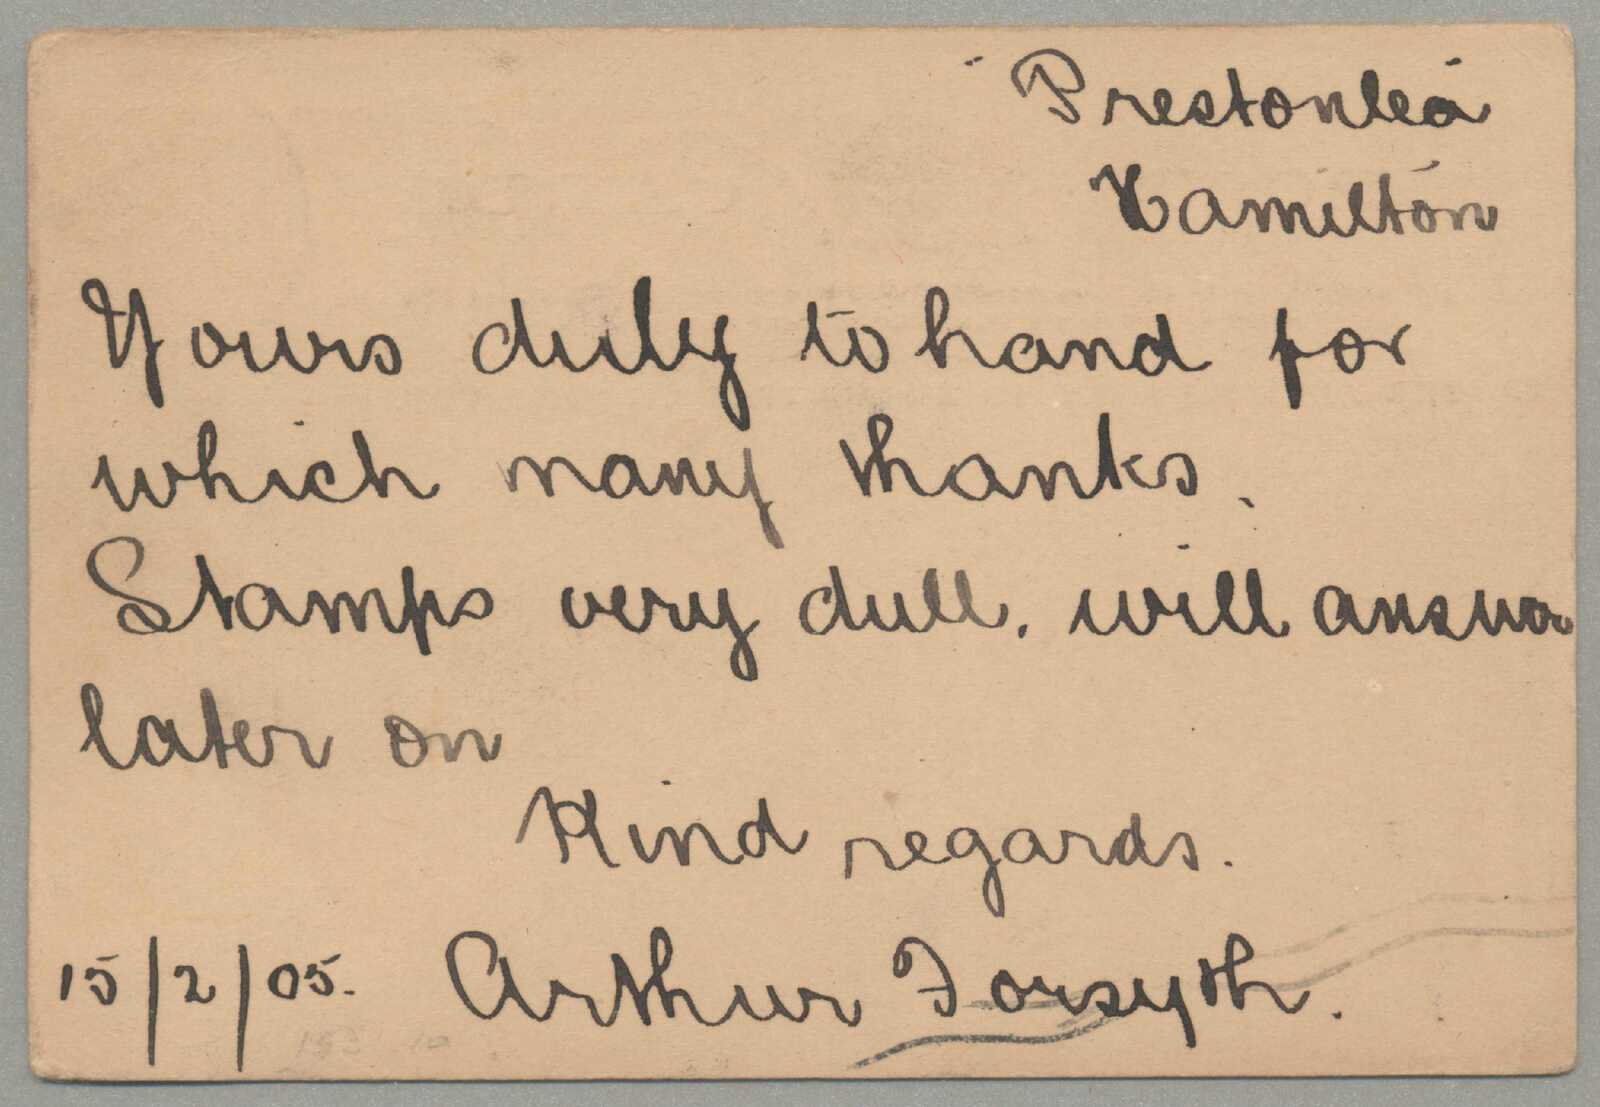 Prestonlea
Hamilton
Yours duly to hand for
which many thanks.
Stamps very dull. will answer
later on
Kind regards.
15/2/05. Arthur Forsyth.